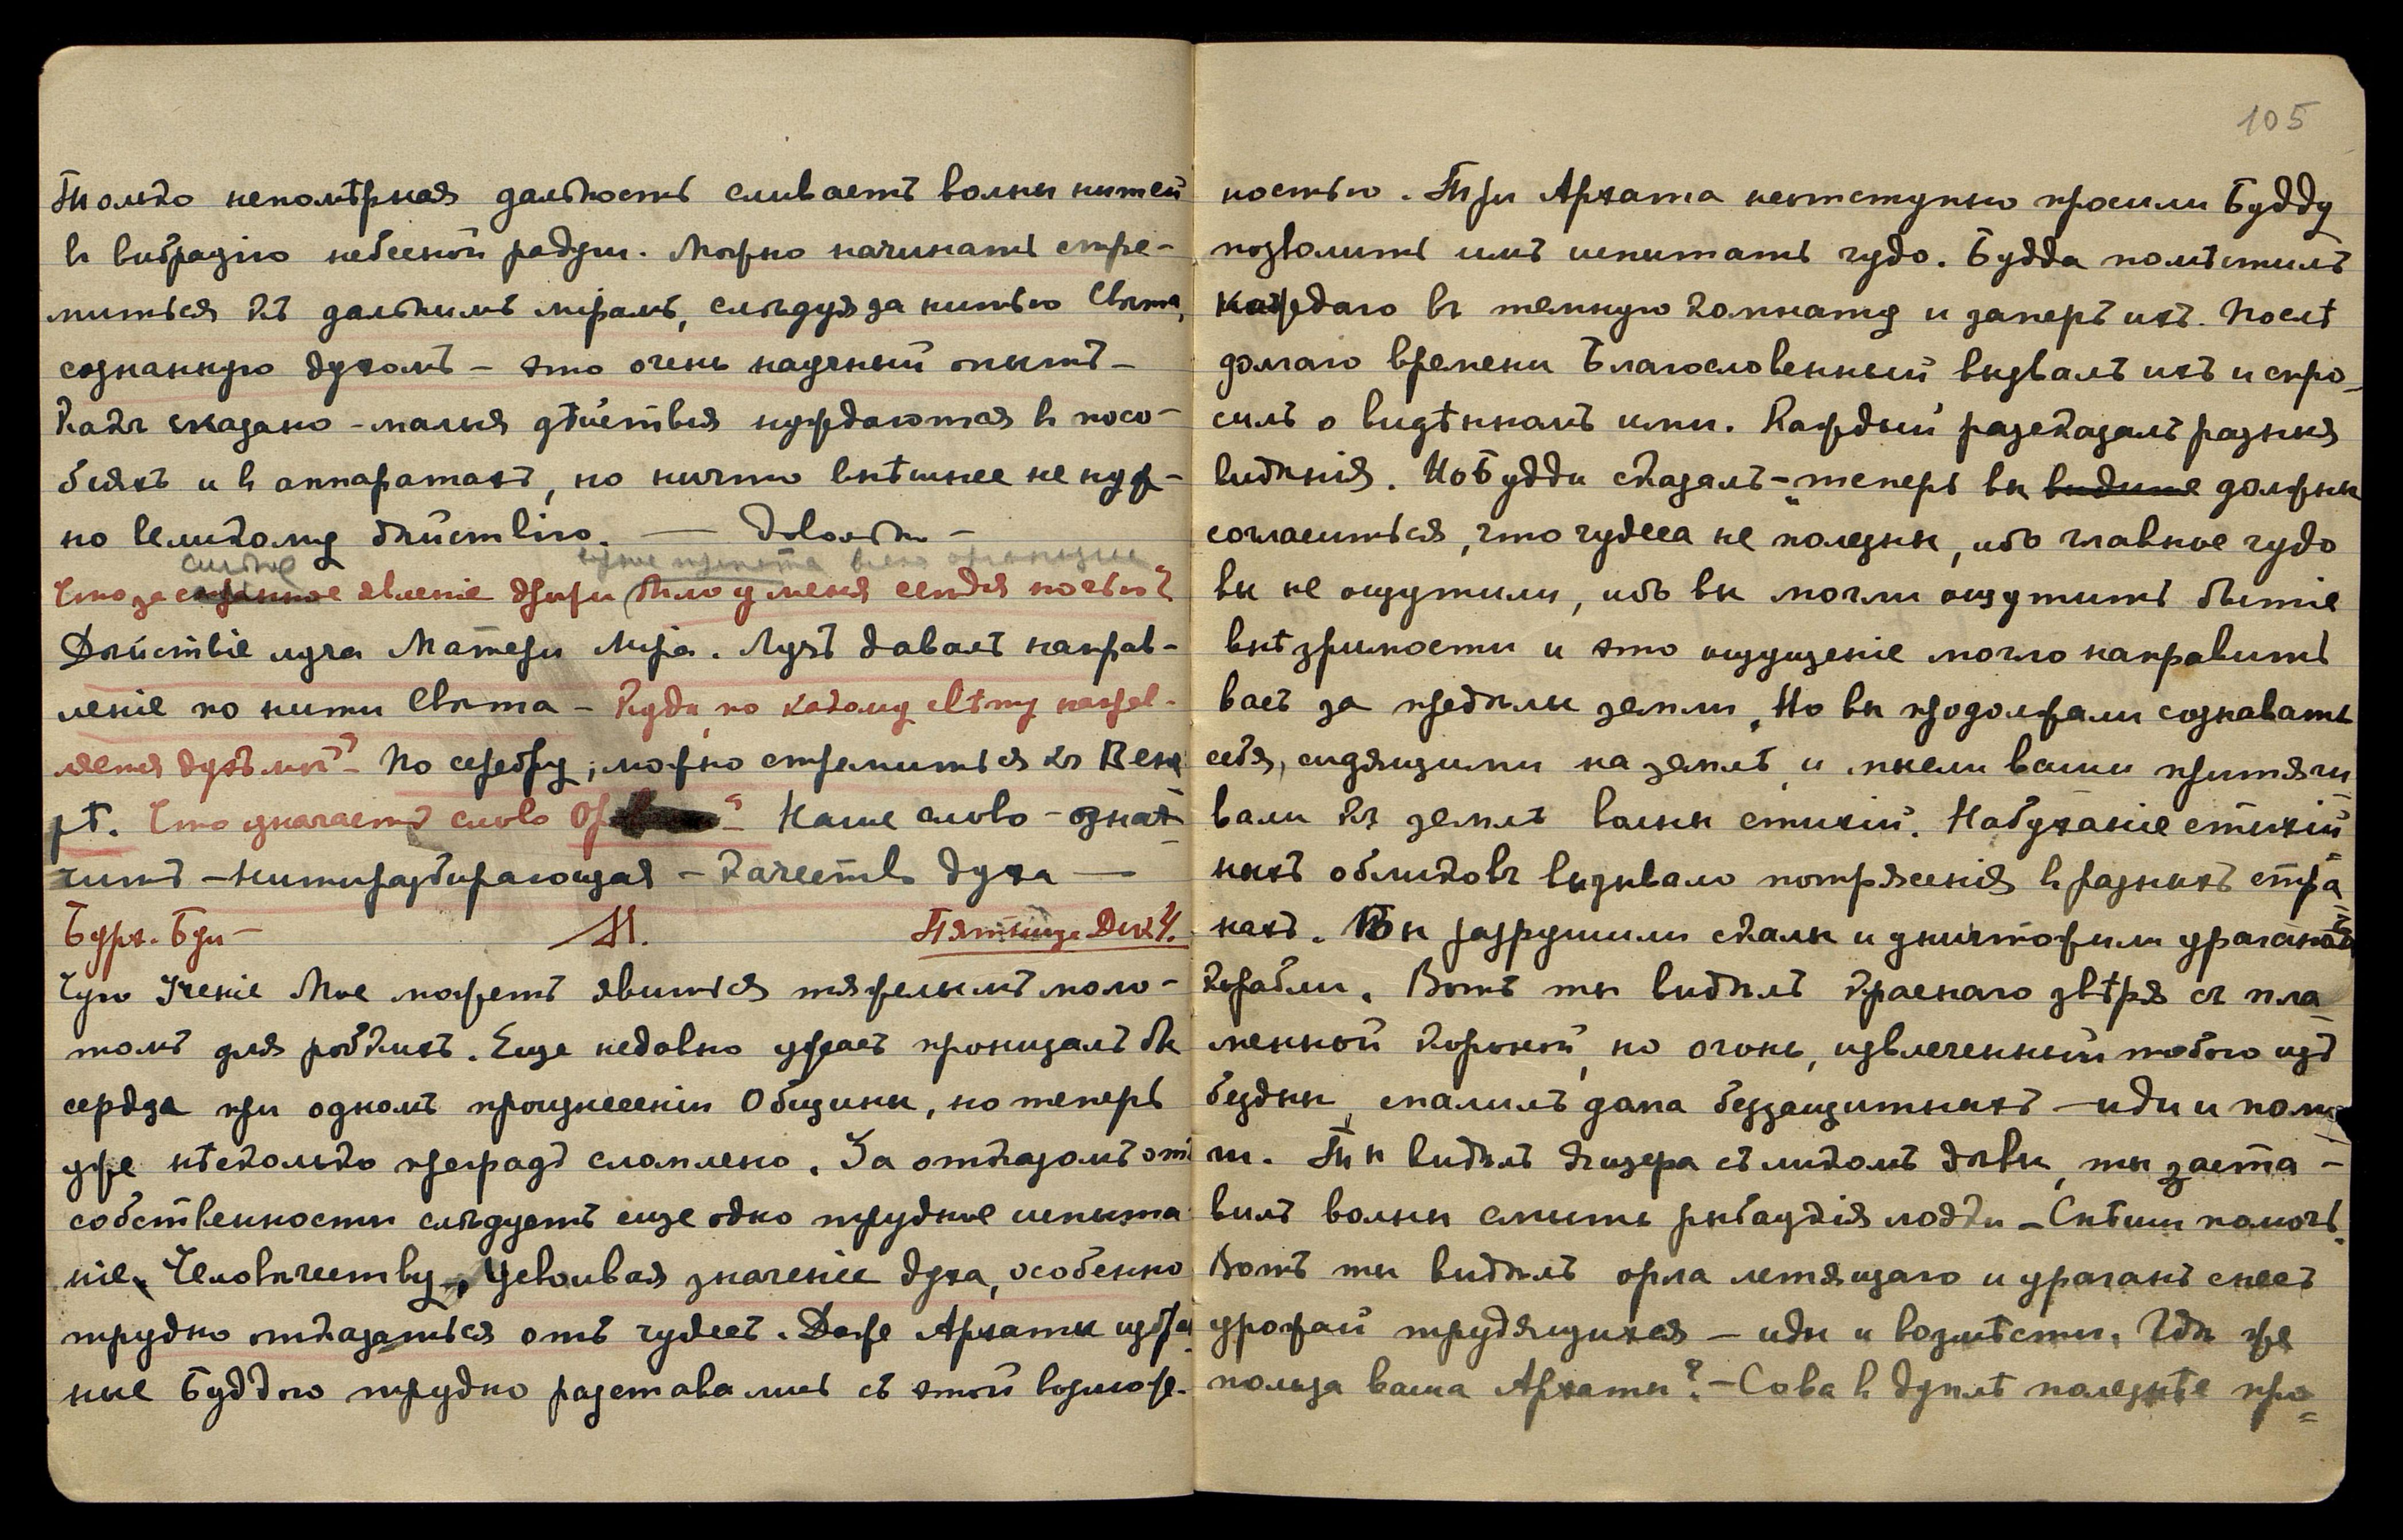 Только непомѣрная дальность сливаетъ волны нитей
въ вибрацію небесной радуги. Можно начинать стре-
миться къ дальнимъ мірамъ, слѣдуя за нитью Свѣта,
сознанную духомъ – это очень научный опытъ –
Какъ сказано – малыя дѣйствія нуждаются въ посо-
біяхъ и въ аппаратахъ, но ничто внѣшнее не нуж-
но великому дѣйствію. — Довольно –
сильное
Что за явленіе дрожи было у меня сегодня ночью?
Дѣйствіе луча Матери Міра. Лучъ давалъ направ-
леніе по нити Свѣта – Куда, по какому свѣту направ-
ляется духъ мой? – По серебру, можно стремиться къ Вене
рѣ. Что означаетъ слово – Наше слово – означ
читъ – нитиразбирающая – качество духа —
Бурх. Буи – М. Пятница Дек 4.
Чую Ученіе Мое можетъ явиться тяжелымъ моло-
томъ для робкихъ. Еще недавно ужасъ пронизалъ бы
сердца при одномъ произнесеніи Общины, но теперь
уже нѣсколько преградъ сломлено. За отказомъ отъ
собственности слѣдуетъ еще одно трудное испыта
ніе Человѣчеству. Усвоивая значеніе духа, особенно
трудно отказаться отъ чудесъ. Даже Архаты избра
ные Буддою трудно разставались съ этой возмож-
105
ностью. Три Архата неотступно просили Будду
позволить имъ испытать чудо. Будда помѣстилъ
каждаго въ темную комнату и заперъ ихъ. Послѣ
долгаго времени Благословенный вызвалъ ихъ и спро-
силъ о видѣнномъ ими. Каждый разсказалъ разныя
видѣнія. Но Будда сказалъ – "теперь вы видите должны
согласиться, что чудеса не полезны, ибо главное чудо
вы не ощутили, ибо вы могли ощутить бытіе
внѣ зримости и это ощущеніе могло направить
васъ за предѣлы земли. Но вы продолжали сознавать
себя, сидящими на землѣ, и мысли ваши притяги
вали къ землѣ волны стихій. Набуханіе стихій
ныхъ обликовъ вызывало потрясенія въ разныхъ стра
нахъ. Вы разрушили скалы и уничтожили ураганомъ
корабли. Вотъ ты видѣлъ краснаго звѣря съ пла
менной короной, но огонь, извлеченный тобою изъ
бездны, спалилъ дома беззащитныхъ – иди и помо
ги. Ты видѣлъ ящера съ ликомъ дѣвы, ты заста-
вилъ волны смыть рыбацкія лодки – Спѣши помочь.
Вотъ ты видѣлъ орла летящаго и ураганъ снесъ
урожай трудящихся – иди и возмѣсти. Гдѣ же
польза ваша Архаты? – Сова въ дуплѣ полезнѣе про=